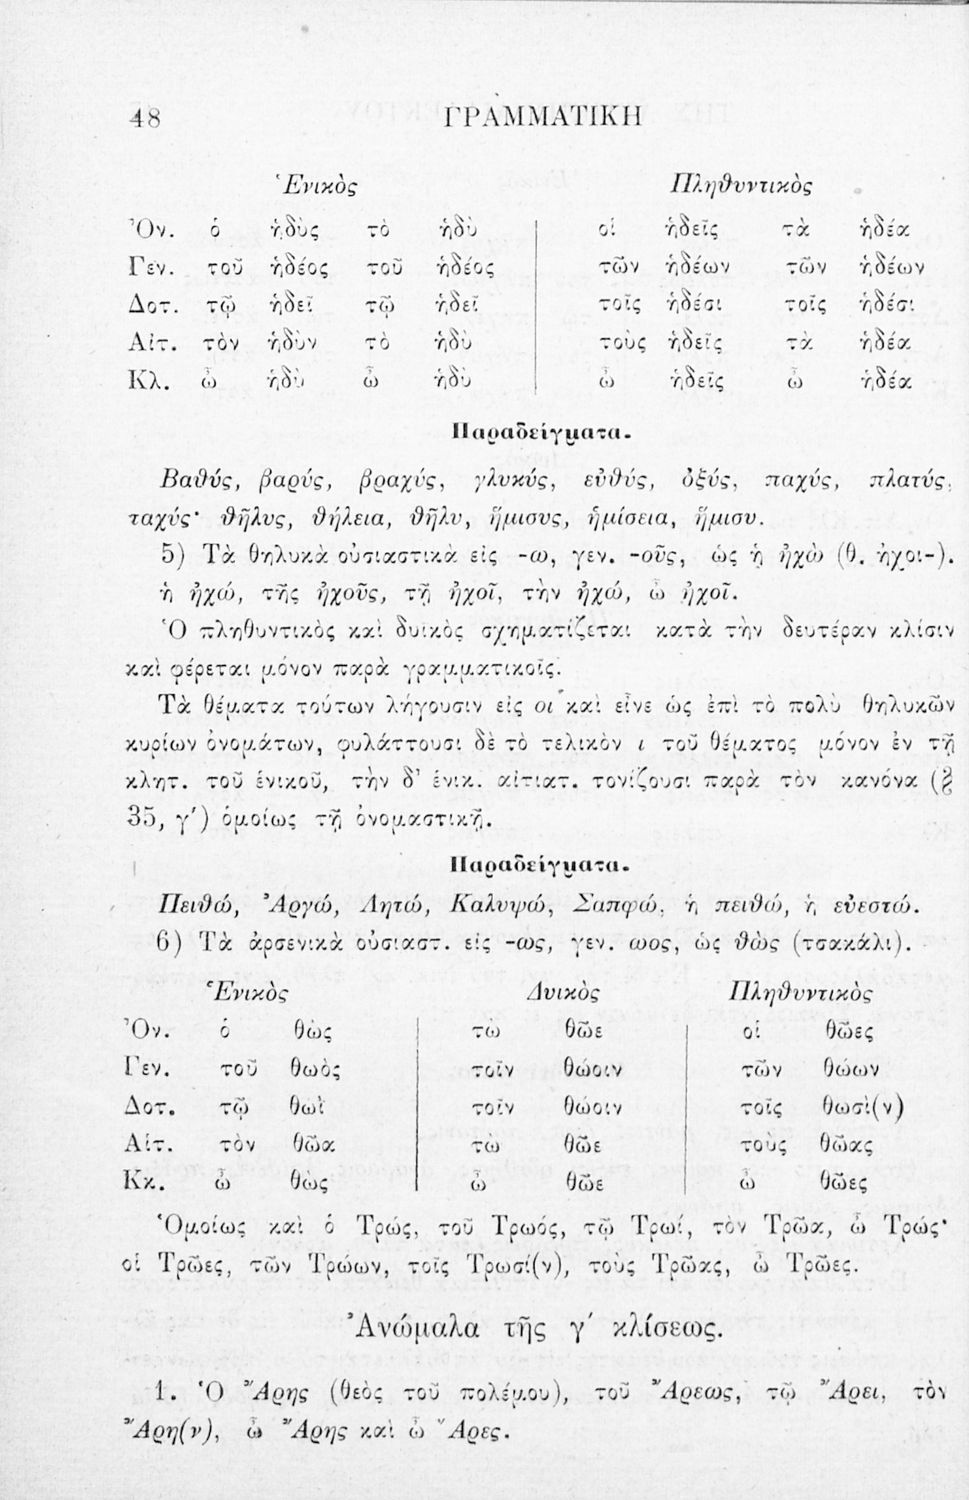 48 ΓΡΑΜΜΑΤΙΚΗ
Ἑνικὸς Πληθυντικὸς
Ὀν. ὁ ἡδὺς τὸ ἡδὺ οἱ ἡδεῖς τὰ ἡδέα
Γεν. τοῦ ἡδέος τοῦ ἡδέος τῶν ἡδέων τῶν ἡδέων
Δοτ. τῷ ἡδεῖ τῷ ἡδεῖ τοῖς ἡδέσι τοῖς ἡδέσι
Αἰτ. τὸν ἡδὺν τὸ ἡδὺ τοὺς ἡδεῖς τὰ ἡδέα
Κλ. ὦ ἡδὺ ὦ ἡδὺ ὦ ἡδεῖς ὦ ἡδέα
Παραδείγματα.
Βαθύς, βαρύς, βραχύς, γλυκύς, εὐθύς, ὀξύς, παχύς, πλατύς,
ταχύς· θῆλυς, θήλεια, θῆλυ, ἥμισυς, ἡμίσεια, ἥμισυ.
5) Τὰ θηλυκὰ οὐσιαστικὰ εἰς -ω, γεν. -οῦς, ὡς ἡ ἠχὼ (θ. ἠχοι-).
ἡ ἠχώ, τῆς ἠχοῦς, τῇ ἠχοῖ, τὴν ἠχώ, ὦ ἠχοῖ.
Ὁ πληθυντικὸς καὶ δυϊκὸς σχηματίζεται κατὰ τὴν δευτέραν κλίσιν
καὶ φέρεται μόνον παρὰ γραμματικοῖς.
Τὰ θέματα τούτων λήγουσιν εἰς οι καὶ εἶνε ὡς ἐπὶ τὸ πολὺ θηλυκῶν
κυρίων ὀνομάτων, φυλάττουσι δὲ τὸ τελικὸν ι τοῦ θέματος μόνον ἐν τῇ
κλητ. τοῦ ἑνικοῦ, τὴν δ' ἑνικ. αἰτιατ. τονίζουσι παρὰ τὸν κανόνα (§
35, γ') ὁμοίως τῇ ὀνομαστικῇ.
Παραδείγματα.
Πειθώ, Ἀργώ, Λητώ, Καλυψώ, Σαπφώ, ἡ πειθώ, ἡ εὐεστώ.
6) Τὰ ἀρσενικὰ οὐσιαστ. εἰς -ως, γεν. ωος, ὡς θὼς (τσακάλι).
Ἑνικὸς Δυικὸς Πληθυντικὸς
Ὀν. ὁ θὼς τω θῶε οἱ θῶες
Γεν. τοῦ θωὸς τοῖν θώοιν τῶν θώων
Δοτ. τῷ θωῒ τοῖν θώοιν τοῖς θωσὶ(ν)
Αἰτ. τὸν θῶα τὼ θῶε τοὺς θῶας
Κκ. ὦ θὼς ὦ θῶε ὦ θῶες
Ὁμοίως καὶ ὁ Τρώς, τοῦ Τρωός, τῷ Τρωΐ, τὸν Τρῶα, ὦ Τρώς·
οἱ Τρῶες, τῶν Τρώων, τοῖς Τρωσί(ν), τοὺς Τρῶας, ὦ Τρῶες.
Ἀνώμαλα τῆς γ' κλίσεως.
1. Ὁ Ἄρης (θεὸς τοῦ πολέμου), τοῦ Ἄρεως, τῷ Ἄρει, τὸν
Ἄρη(ν), ὦ Ἄρης καὶ ὦ Ἄρες.